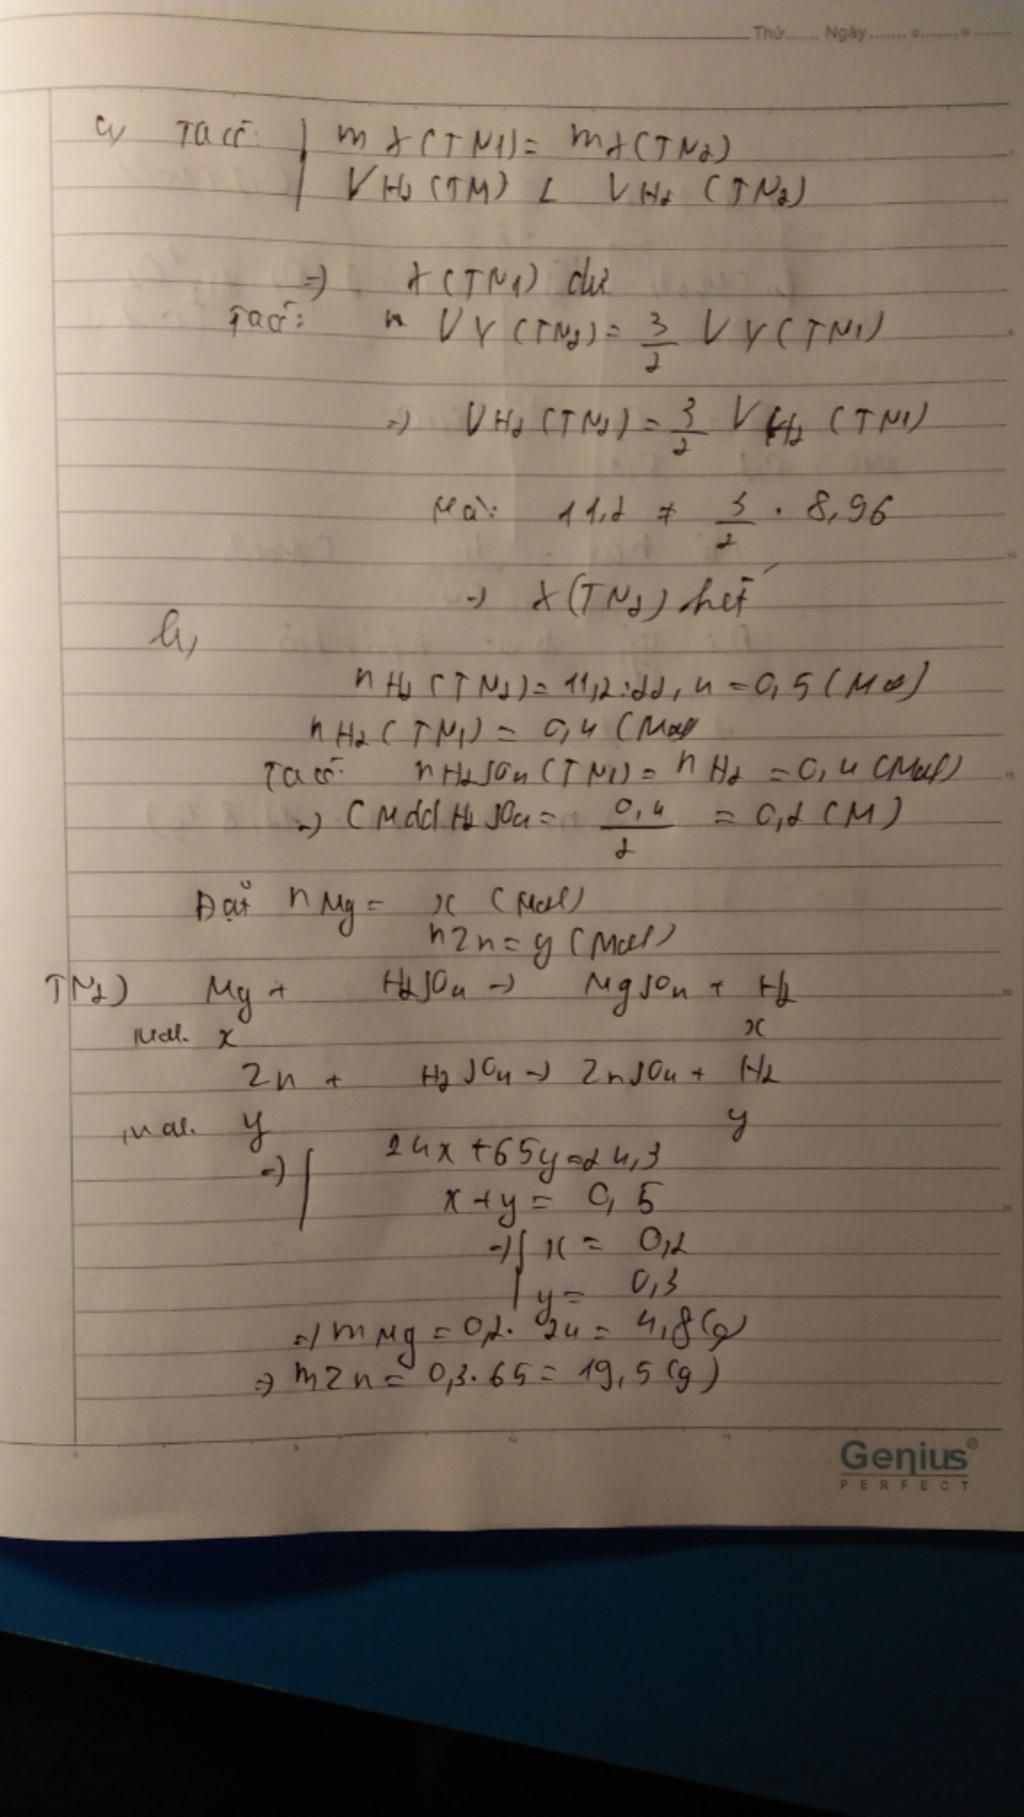 Thứ...... Ngày....... o....... o.......
a, Ta có: | m X(TN1) = m X(TN2)
| V H2 (TN1) < V H2 (TN2)
=> X(TN1) dư
Ta có: V Y (TN2) = 3/2 V Y (TN1)
=> V H2 (TN2) = 3/2 V H2 (TN1)
Mà: 11,2 ≠ 3/2 . 8,96
=> X(TN2) hết
b,
n H2 (TN2) = 11,2 : 22,4 = 0,5 (Mol)
n H2 (TN1) = 0,4 (Mol)
Ta có: n H2SO4 (TN1) = n H2 = 0,4 (Mol)
=> CMdd H2SO4 = 0,4/2 = 0,2 (M)
Đặt n Mg = x (Mol)
n Zn = y (Mol)
TN2) Mg + H2SO4 -> MgSO4 + H2
Mol. x x
Zn + H2SO4 -> ZnSO4 + H2
Mol. y y
=> | 24x + 65y = 24,3
x + y = 0,5
=> | x = 0,2
| y = 0,3
=> m Mg = 0,2 . 24 = 4,8 (g)
=> m Zn = 0,3 . 65 = 19,5 (g)
Genius®
PERFECT